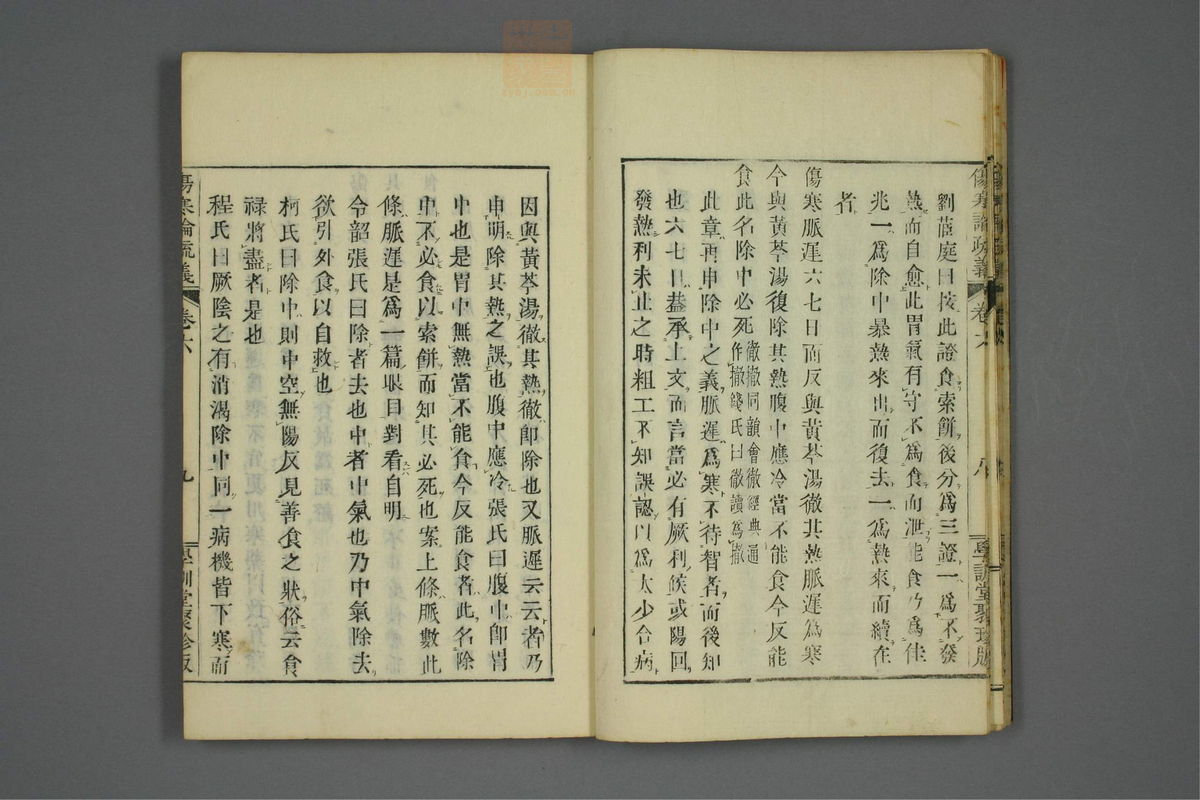 傷寒論疏義
卷六
八
學訓堂聚珍版
劉茝庭曰按此證食索餅後分爲三證一爲不發
熱而自愈此胃氣有守不爲食而泄能食乃爲佳
兆一爲除中暴熱來出而復去一爲熱來而續在
者
傷寒脈遲六七日而反與黃芩湯徹其熱脈遲爲寒
今與黃芩湯復除其熱腹中應冷當不能食今反能
食此名除中必死徹撤同韻會徹經典通
作撤錢氏曰徹讀爲撤
此章再申除中之義脈遲爲寒不待智者而後知
也六七日葢承上文而言當必有厥利候或陽回
發熱利未止之時粗工不知誤認以爲太少合病
因與黃芩湯徹其熱徹卽除也又脈遲云云者乃
申明除其熱之誤也腹中應冷張氏曰腹中卽胃
中也是胃中無熱當不能食今反能食者此名除
中不必食以索餅而知其必死也案上條脈數此
條脈遲是爲一篇眼目對看自明
令韶張氏曰除者去也中者中氣也乃中氣除去
欲引外食以自救也
柯氏曰除中則中空無陽反見善食之狀俗云食
祿將盡者是也
程氏曰厥陰之有消渴除中同一病機皆下寒而
傷寒論疏義
卷六
九
學訓堂聚珍版